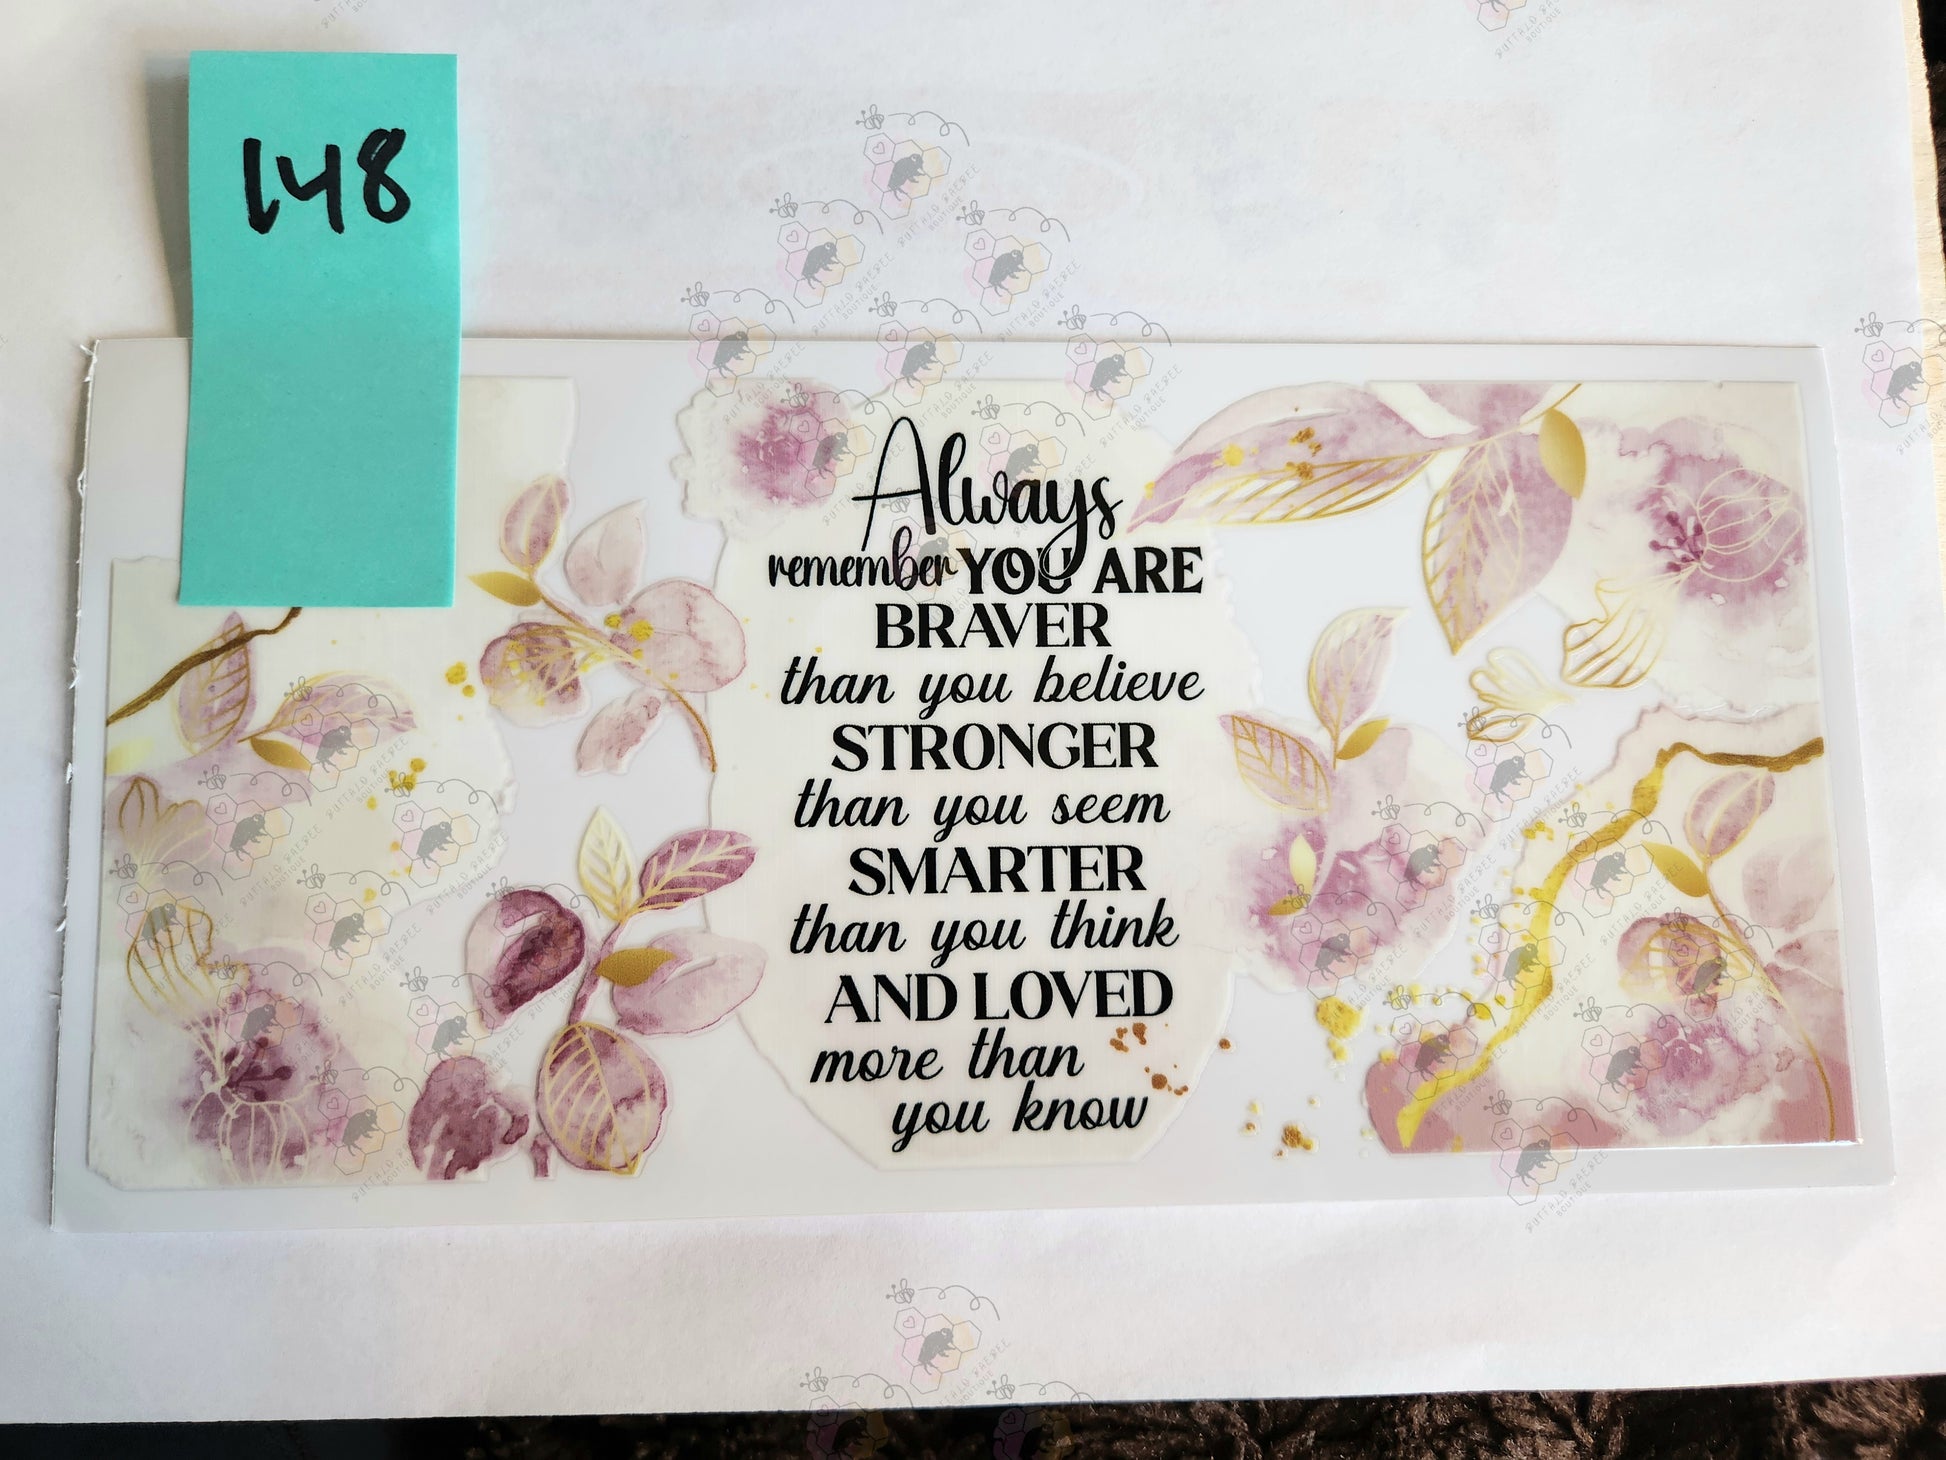 148
Always
remember YOU ARE
BRAVER
than you believe
STRONGER
than you seem
SMARTER
than you think
AND LOVED
more than
you know
BUFFALO BAEBEE
BOUTIQUE